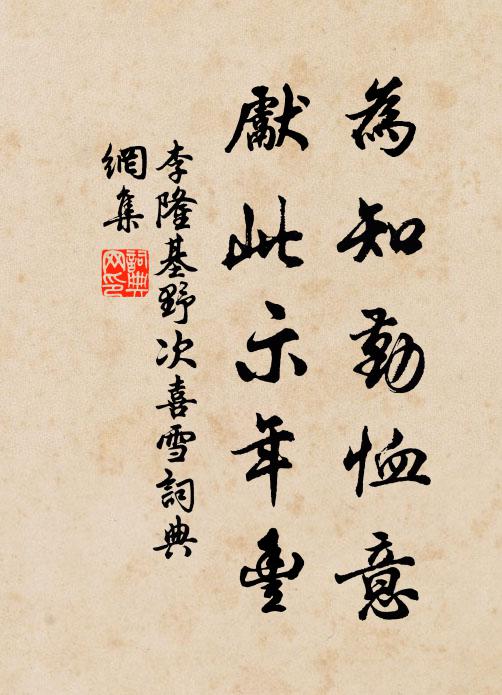 為知勤恤意
獻此示年豐
李隆基野次喜雪詞典
網集
詞典
网印